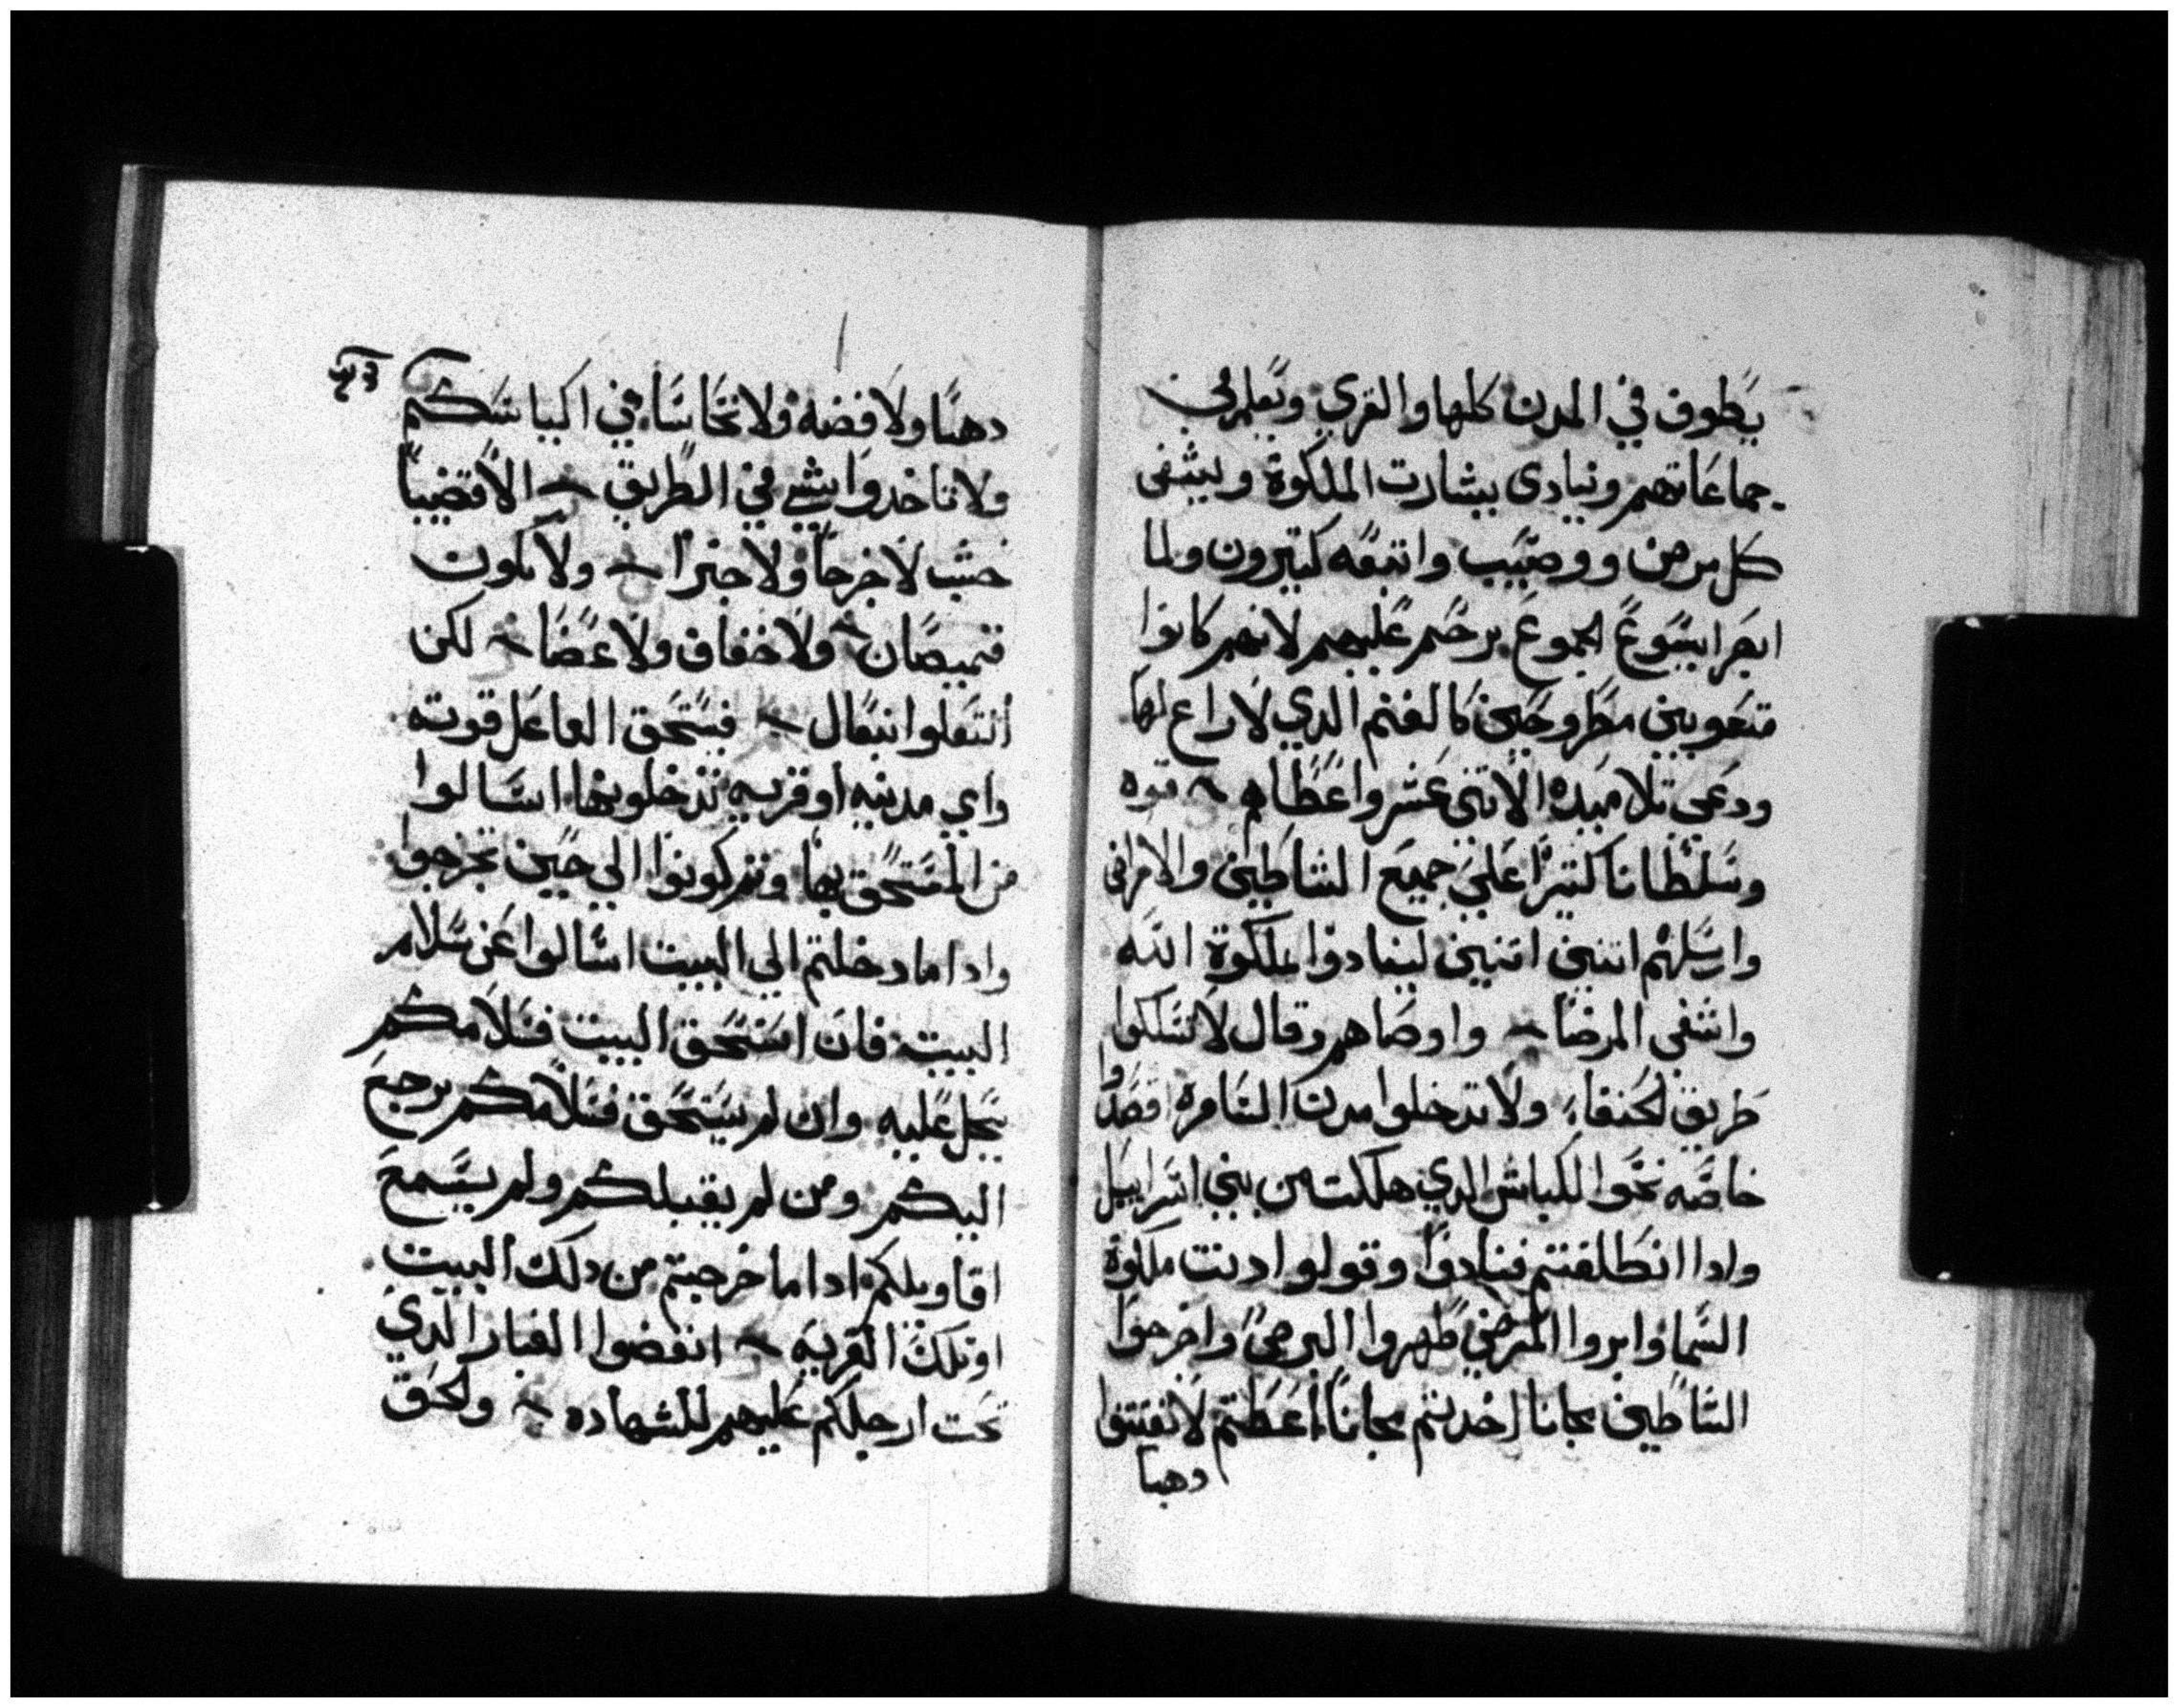 يطوف في المدن كلها والقري ويعلم في
جماعاتهم وينادى ببشارت الملكوة ويشفى
كل مرض ووصب واتبعه كتيرون ولما
ابصر ايسوع الجموع يرحم عليهم لانهم كانوا
متعوبين مطروحين كالغنم الدي لا راع لها
ودعى تلاميده الاتنى عشر واعطاهم قوه
وسلطانا كتيرا على جميع الشاطين والامراض
وارسلهم اتنين اتنين لينادوا بملكوة الله
واشفى المرضا واوصاهم وقال لا تسلكوا
طريق الحنفاء ولا تدخلوا مدن السامره اقصدوا
خاصه نحوا الكباش الدي هلكت من بني اسراييل
وادا انطلقتم فنادوا وقولوا دنت ملكوة
السما وابروا المرضي طهروا البرص واخرجوا
الشاطين مجانا اخدتم مجانا اعطتم لا تقتنوا
دهبا
دهبا ولا فضه ولا نحاسا في اكياسكم
ولا تاخدوا بشي في الطريق الا قضيبا
خشب لا خرجا ولا خبزا ولا يكون
قميصان ولا خفاف ولا عصا لكن
انتعلوا انبعال فيستحق العامل قوته
واي مدينه او قريه تدخلوها اسالوا
من المستحق بها وتم كونوا الي حين تخرجوا
وادا ما دخلتم الي البيت اسالوا عن سلام
البيت فان استحق البيت فسلامكم
يحل عليه وان لم يستحق فسلامكم يرجع
اليكم ومن لم يقبلكم ولم يسمع
اقاويلكم ادا ما خرجتم من دلك البيت
او تلك القريه انفضوا الغبار الدي
تحت ارجلكم عليهم للشهاده والحق